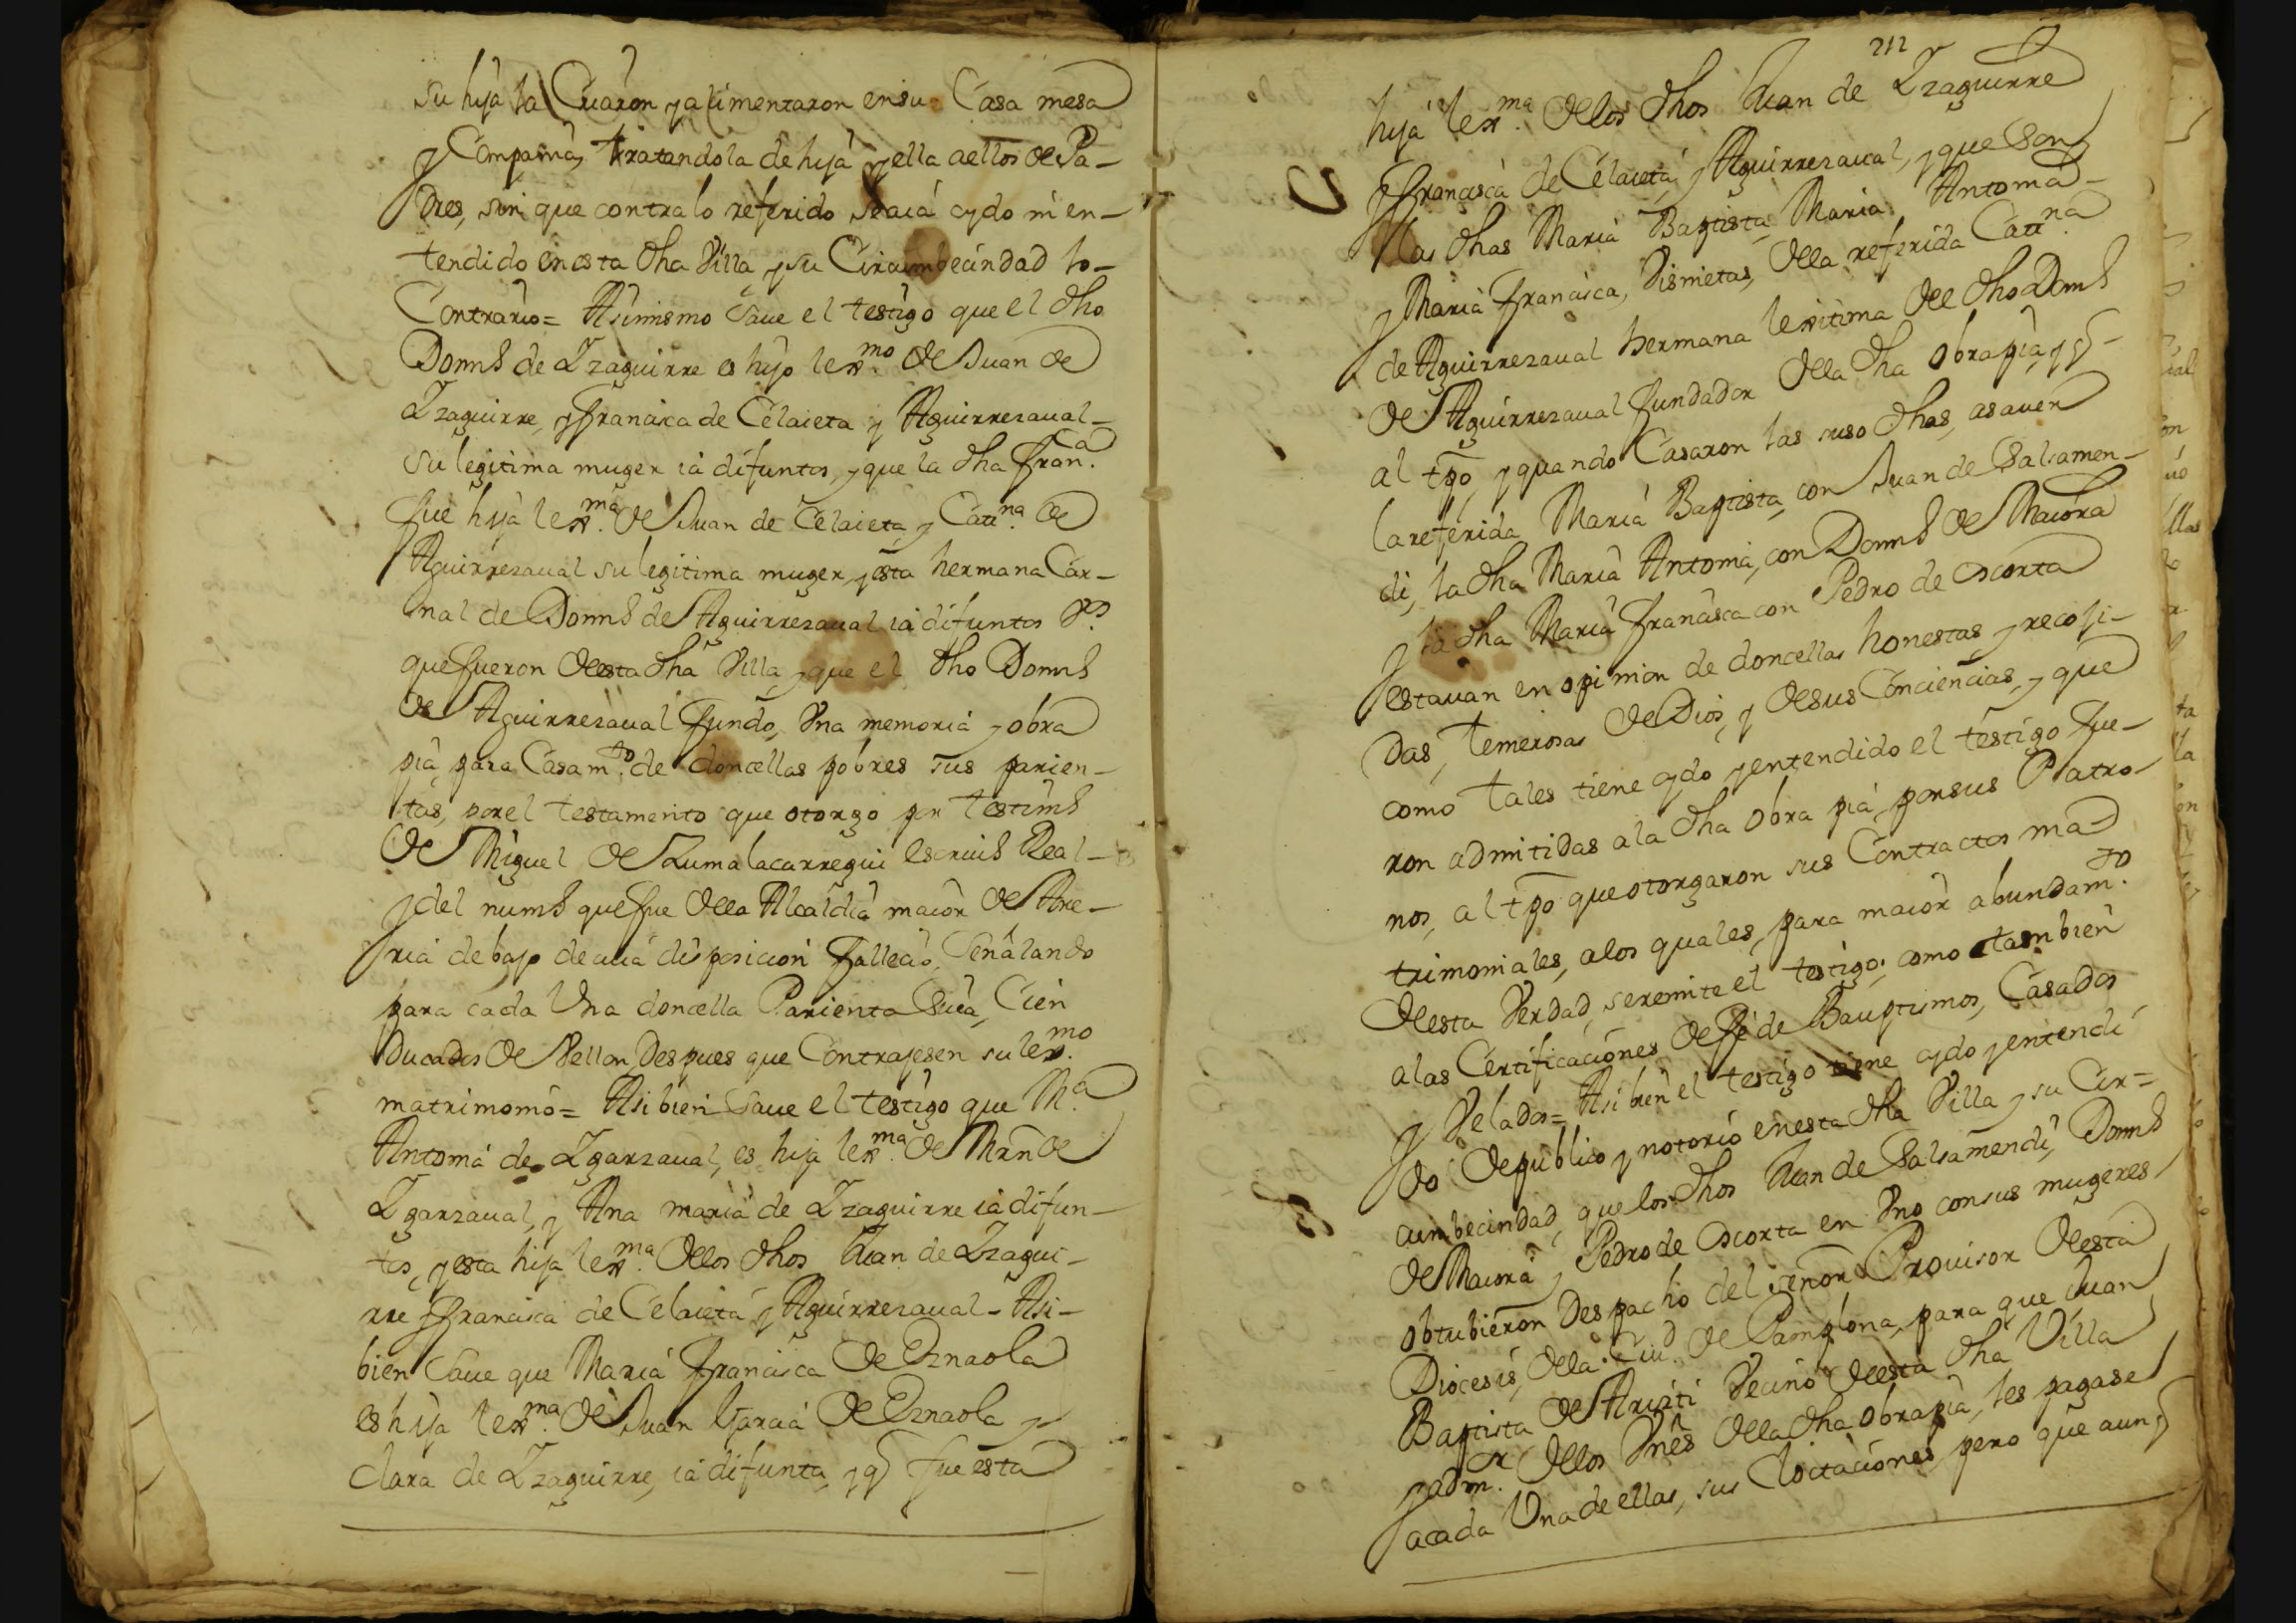 su hija la Criaron y alimentaron en su Casa mesa
y Compañia, tratandola de hija y ella a ellos de Pa-
dres, sin que contra lo referido se aia oydo ni en-
tendido en esta dha Villa y su Circumbecindad lo
Contrario = Asimismo Saue el testigo que el dho
Doms de Yzaguirre es hijo lexmo de Juan de
Yzaguirre, y Francisca de Celaieta y Aguirrezaual
su legitima muger ia difuntos, y que la dha Franca
fue hija lexma de Juan de Celaieta, y Catna de
Aguirrezaual su legitima muger, y esta hermana Car-
nal de Doms de Aguirrezaual ia difuntos Vs
que fueron desta dha Villa, y que el dho Doms
de Aguirrezaual fundo, Vna memoria y obra
pia para Casamto de doncellas pobres sus parien-
tas, por el testamento que otorgo por testims
de Miguel de Zumalacarregui escriuis Real
y del nums que fue de la Alcaldia maior de Are-
ria debajo de cuia disposicion fallecio, Señalando
para cada Vna doncella Parienta Suia, Cien
Ducados de Vellon Despues que Contrajesen su lexmo
matrimonio = Asi bien Saue el testigo que Ma
Antonia de Ygarzaual, es hija lexma de Mrn de
Ygarzaual, y Ana maria de Yzaguirre ia difun-
tos, y esta hija lexma de los dhos Juan de Yzagui-
rre y Francisca de Celaieta y Aguirrezaual - Asi-
bien Saue que Maria Francisca de Eznaola
es hija lexma de Juan Garcia de Eznaola y
Clara de Yzaguirre, ia difunta, y q fue esta
212
hija lexma de los dhos Juan de Yzaguirre
y Francisca de Celaieta, y Aguirrezaual, y que Son
las dhas Maria Baptista, Maria Antonia
y Maria Francisca, Visnietas, de la referida Catna
de Aguirrezaual hermana lexitima del dho Doms
de Aguirrezaual fundador de la dha obra pia, y q
al tpo, y quando Casaron las suso dhas, a sauer
la referida Maria Baptista, con Juan de Salsamen-
di, la dha Maria Antonia, con Doms de Maiora
y la dha Maria Francisca con Pedro de Ascorta
estauan en opinion de doncellas honestas, y recoji-
das, temerosas de Dios, y de sus Conciencias, y que
como tales tiene oydo y entendido el testigo fue-
ron admitidas a la dha obra pia, por sus Patro-
nos, al tpo que otorgaron sus Contractos ma-
trimoniales, a los quales, para maior abundamto
desta Verdad, se remite el testigo, como tambien
a las Certificaciones de fe de Bauptismos, Casados
y Velados = Asi bien el testigo tiene oydo y entendi
do de publico y notorio en esta dha Villa y su Cir=
cumbecindad, que los dhos Juan de Salsamendi, Doms
de Maiora y Pedro de Ascorta en Vno con sus mugeres
obtubieron Despacho del señor Prouisor desta
Diocesis, de la Ciud de Pamplona, para que Juan
Baptista de Aristi Vecino desta dha Villa
y admor de los Vnes de la dha obra pia, les pagase
a cada Vna de ellas, sus dotaciones, pero que aunq